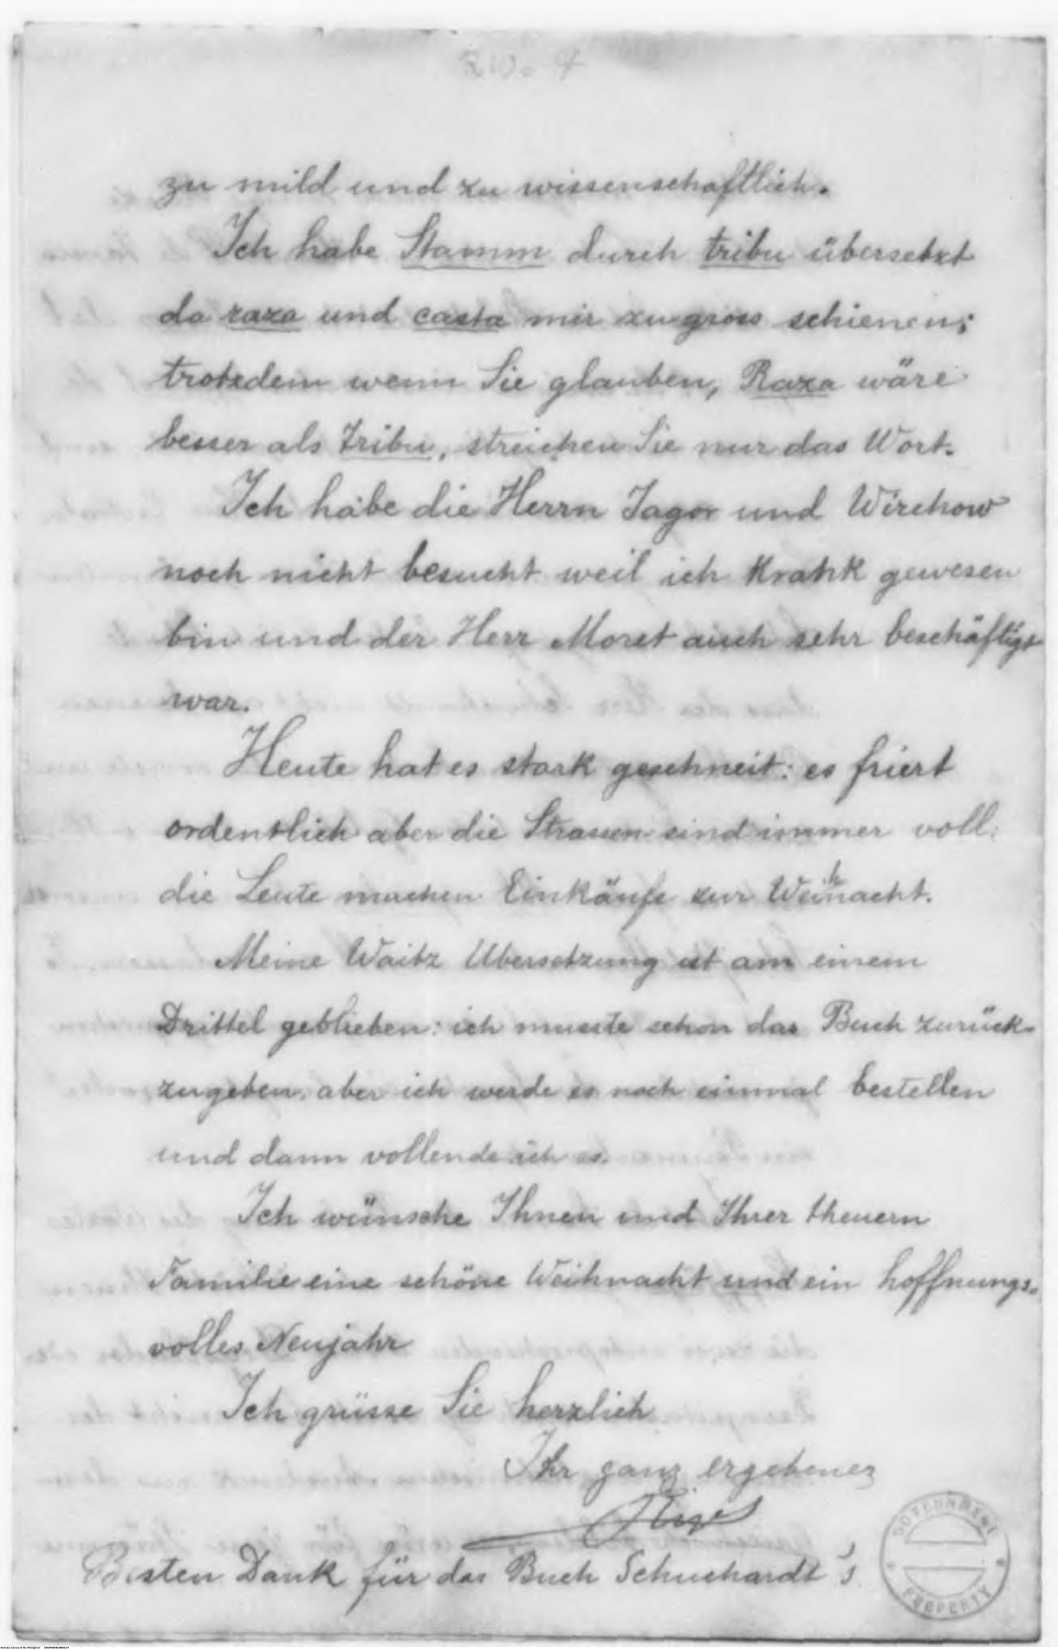 No. 4
zu mild und zu wissenschaftlich.
Ich habe Stamm durch tribu übersetzt
da raza und casta mir zu gross schienen;
trotzdem wenn Sie glauben, Raza wäre
besser als tribu, streichen Sie nur das Wort.
Ich habe die Herrn Jagor und Wirchow
noch nicht besucht weil ich krank gewesen
bin und der Herr Moret auch sehr beschäftigt
war.
Heute hat es stark geschneit: es friert
ordentlich aber die Strassen sind immer voll:
die Leute machen Einkäufe zur Weihnacht.
Meine Waitz Ubersetzung ist am einem
Drittel geblieben: ich musste schon das Buch zurück-
zugeben, aber ich werde es noch einmal bestellen
und dann vollende ich es.
Ich wünsche Ihnen und Ihrer theuern
Familie eine schöne Weihnacht und ein hoffnungs-
volles Neujahr
Ich grüsse Sie herzlich
Ihr ganz ergebener
Besten Dank für das Buch Schuchardt's
GOVERNMENT
PROPERTY